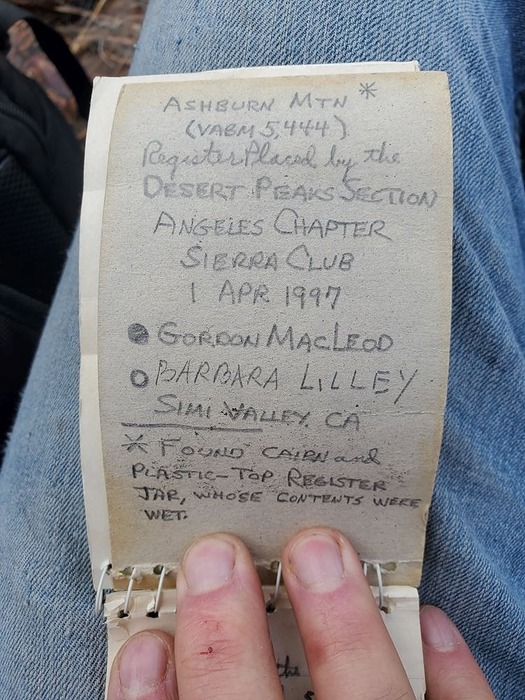 ASHBURN MTN *
(VABM 5,444)
Register Placed by the
DESERT PEAKS SECTION
ANGELES CHAPTER
SIERRA CLUB
1 APR 1997
● GORDON MACLEOD
○ BARBARA LILLEY
SIMI VALLEY, CA
* FOUND CAIRN and
PLASTIC-TOP REGISTER
JAR, WHOSE CONTENTS WERE
WET.
the